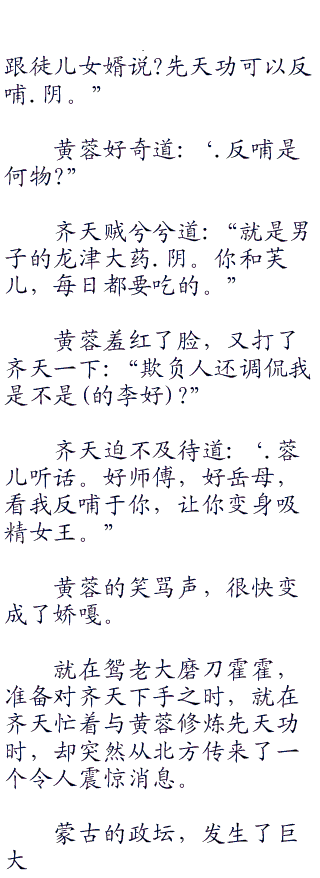 跟徒儿女婿说?先天功可以反
哺.阴。”
黄蓉好奇道:‘.反哺是
何物?”
齐天贼兮兮道:“就是男
子的龙津大药.阴。你和芙
儿，每日都要吃的。”
黄蓉羞红了脸，又打了
齐天一下:“欺负人还调侃我
是不是(的李好)?”
齐天迫不及待道:‘.蓉
儿听话。好师傅，好岳母，
看我反哺于你，让你变身吸
精女王。”
黄蓉的笑骂声，很快变
成了娇嘎。
就在鸳老大磨刀霍霍，
准备对齐天下手之时，就在
齐天忙着与黄蓉修炼先天功
时，却突然从北方传来了一
个令人震惊消息。
蒙古的政坛，发生了巨
大